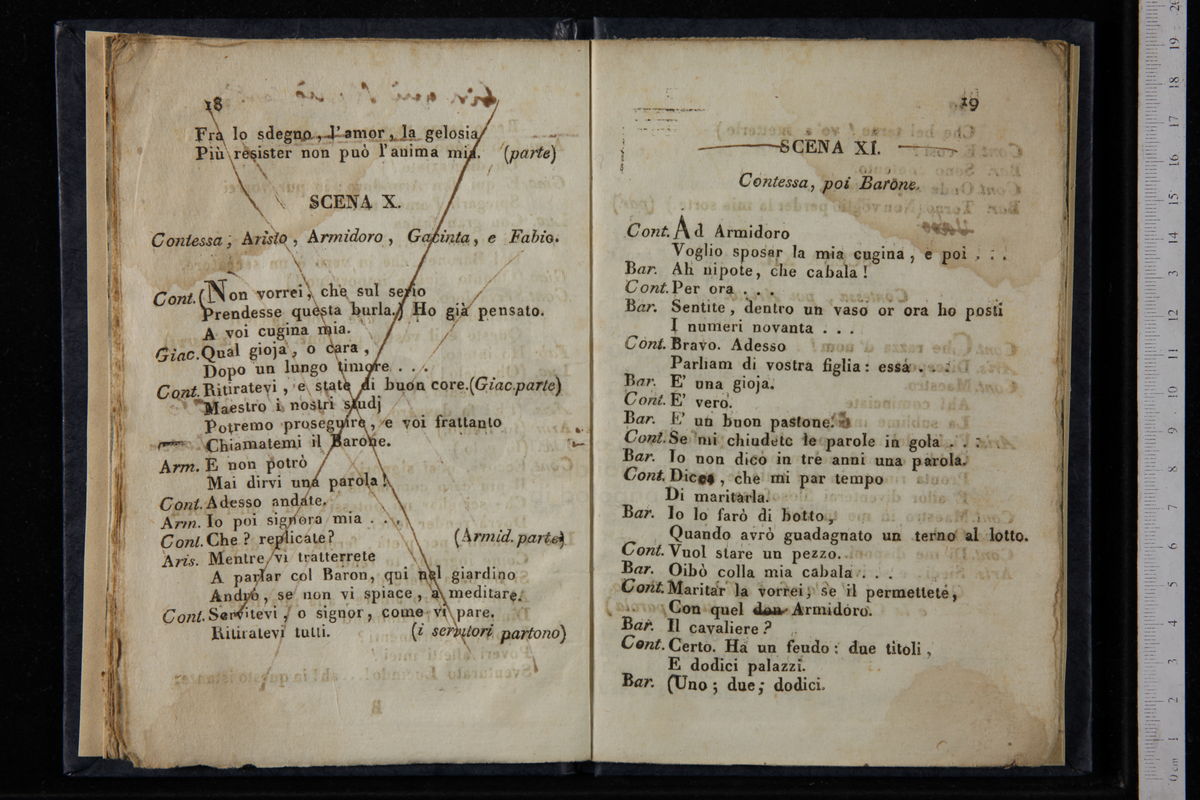 18
Fra lo sdegno, l'amor, la gelosia
Più resister non può l'anima mia. (parte)
SCENA X.
Contessa, Aristo, Armidoro, Gacinta, e Fabio.
Cont. (Non vorrei, che sul serio
Prendesse questa burla.) Ho già pensato.
A voi cugina mia.
Giac. Qual gioja, o cara,
Dopo un lungo timore . . .
Cont. Ritiratevi, e state di buon core. (Giac. parte)
Maestro i nostri studj
Potremo proseguire, e voi frattanto
Chiamatemi il Barone.
Arm. E non potrò
Mai dirvi una parola!
Cont. Adesso andate.
Arm. Io poi signora mia . . .
Cont. Che? replicate? (Armid. parte)
Aris. Mentre vi tratterrete
A parlar col Baron, qui nel giardino
Andrò, se non vi spiace, a meditare.
Cont. Servitevi, o signor, come vi pare.
Ritiratevi tutti. (i servitori partono)
19
SCENA XI.
Contessa, poi Barone.
Cont. Ad Armidoro
Voglio sposar la mia cugina, e poi . . .
Bar. Ah nipote, che cabala!
Cont. Per ora . . .
Bar. Sentite, dentro un vaso or ora ho posti
I numeri novanta . . .
Cont. Bravo. Adesso
Parliam di vostra figlia: essa . . .
Bar. E' una gioja.
Cont. E' vero.
Bar. E' un buon pastone.
Cont. Se mi chiudete le parole in gola . . .
Bar. Io non dico in tre anni una parola.
Cont. Dico, che mi par tempo
Di maritarla.
Bar. Io lo farò di botto,
Quando avrò guadagnato un terno al lotto.
Cont. Vuol stare un pezzo.
Bar. Oibò colla mia cabala . . .
Cont. Maritar la vorrei, se il permettete,
Con quel don Armidoro.
Bar. Il cavaliere?
Cont. Certo. Ha un feudo: due titoli,
E dodici palazzi.
Bar. (Uno; due; dodici.